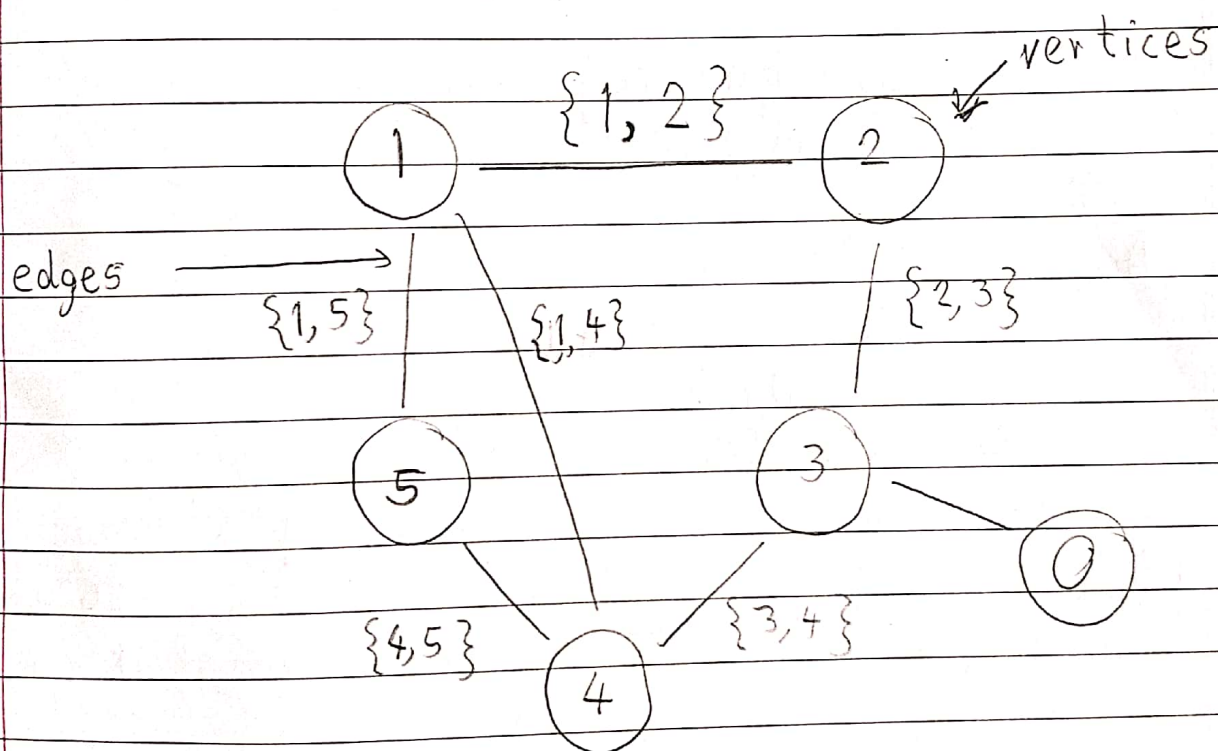 vertices
{1, 2}
1
2
edges
{1,5}
{1,4}
{2,3}
5
3
0
{4,5}
{3,4}
4